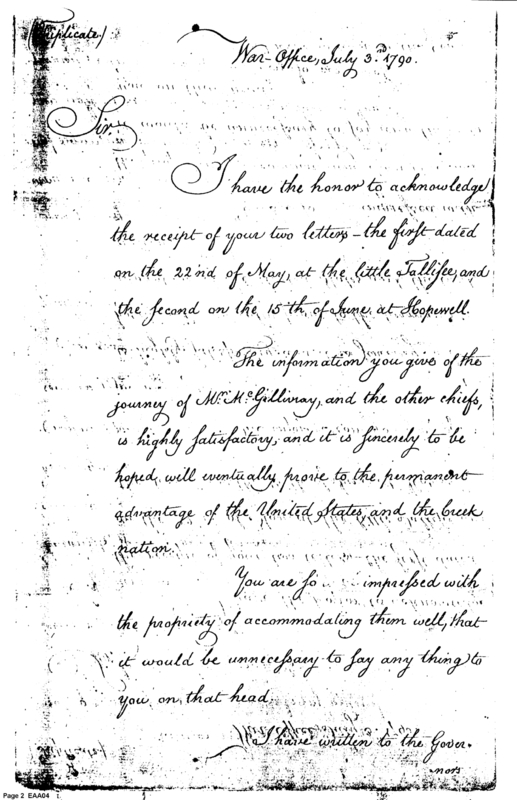 (Duplicate)
War-Office, July 3.rd 1790.
Sir,
I have the honor to acknowledge
the receipt of your two letters - the first dated
on the 22nd of May, at the little Tallisee, and
the second on the 15th of June at Hopewell.
The information you give of the
journey of Mr. McGillivray, and the other chiefs,
is highly satisfactory, and it is sincerely to be
hoped, will eventually prove to the permanent
advantage of the United States, and the Creek
nation.
You are so impressed with
the propriety of accommodating them well, that
it would be unnecessary to say any thing to
you on that head.
I have written to the Gover-
nors
Page 2 EAA04